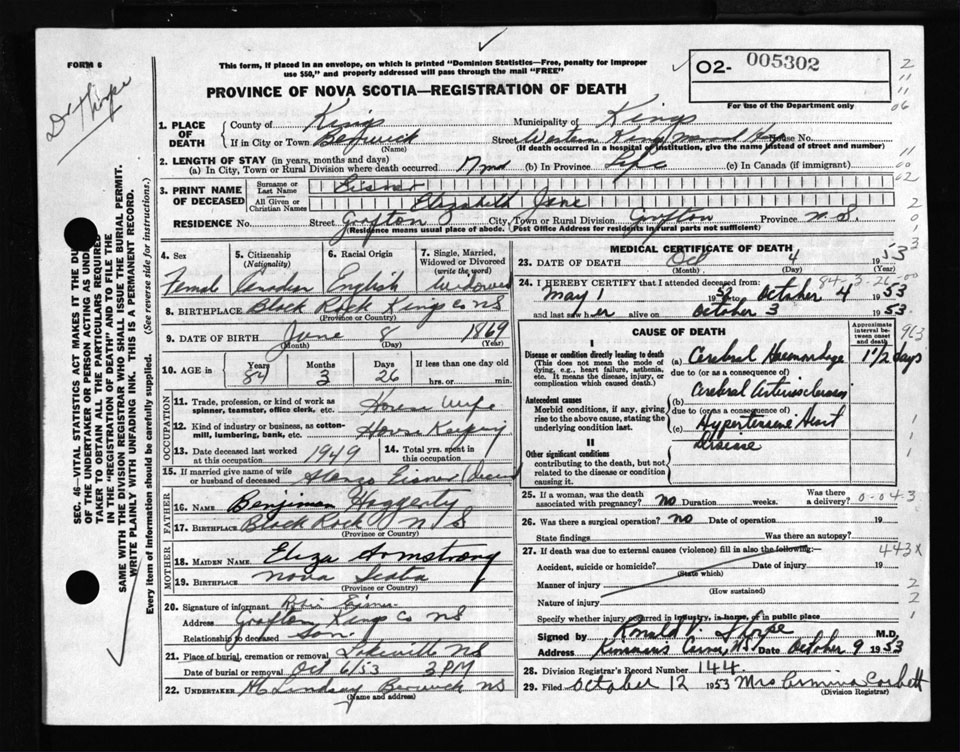 FORM 6
This form, if placed in an envelope, on which is printed "Dominion Statistics—Free, penalty for improper
use $50," and properly addressed will pass through the mail "FREE"
PROVINCE OF NOVA SCOTIA—REGISTRATION OF DEATH
02- 005302
For use of the Department only
Dr Thorpe
SEC. 46—VITAL STATISTICS ACT MAKES IT THE DU
OF THE UNDERTAKER OR PERSON ACTING AS UNDE
TAKER TO OBTAIN ALL THE PARTICULARS REQUIRED
IN THE "REGISTRATION OF DEATH" AND TO FILE THE
SAME WITH THE DIVISION REGISTRAR WHO SHALL ISSUE THE BURIAL PERMIT.
WRITE PLAINLY WITH UNFADING INK. THIS IS A PERMANENT RECORD.
Every item of Information should be carefully supplied. (See reverse side for instructions.)
1. PLACE OF DEATH County of Kings Municipality of Kings
If in City or Town Berwick (Name) Street Western Kings Memorial House No.
(If death occurred in a hospital or institution, give the name instead of street and number)
2. LENGTH OF STAY (in years, months and days)
(a) In City, Town or Rural Division where death occurred 17 md (b) In Province Life (c) In Canada (if immigrant)
3. PRINT NAME OF DECEASED Surname or Last Name Eisner
All Given or Christian Names Elizabeth Jane
RESIDENCE No. Street Grafton City, Town or Rural Division Grafton Province N.S.
(Residence means usual place of abode. (Post Office Address for residents in rural parts not sufficient)
4. Sex Female
5. Citizenship (Nationality) Canadian
6. Racial Origin English
7. Single, Married, Widowed or Divorced (write the word) Widowed
8. BIRTHPLACE Black Rock Kings Co NS
(Province or Country)
9. DATE OF BIRTH June 8 1869
(Month) (Day) (Year)
10. AGE in Years 84 Months 3 Days 26 If less than one day old
hrs. or min.
OCCUPATION
11. Trade, profession, or kind of work as
spinner, teamster, office clerk, etc. House Wife
12. Kind of industry or business, as cotton-
mill, lumbering, bank, etc. House Keeping
13. Date deceased last worked at this occupation 1949 14. Total yrs. spent in this occupation
15. If married give name of wife
or husband of deceased Alonzo Eisner
FATHER
16. NAME Benjimen Haggerty
17. BIRTHPLACE Black Rock N S
(Province or Country)
MOTHER
18. MAIDEN NAME Eliza Armstrong
19. BIRTHPLACE Nova Scotia
(Province or Country)
20. Signature of informant Eisner
Address Grafton Kings Co NS
Relationship to deceased Son.
21. Place of burial, cremation or removal Lakeville NS
Date of burial or removal Oct 6/53 3 PM
22. UNDERTAKER Lindsay Berwick NS
(Name and address)
MEDICAL CERTIFICATE OF DEATH
23. DATE OF DEATH Oct 4 1953
(Month) (Day) (Year)
84-3-26-00
24. I HEREBY CERTIFY that I attended deceased from
May 1 1953 to October 4 1953
and last saw her alive on October 3 1953.
CAUSE OF DEATH
Approximate interval between onset and death
I
Disease or condition directly leading to death
(This does not mean the mode of dying, e.g., heart failure, asthenia, etc. It means the disease, injury, or complication which caused death.)
(a) Cerebral Haemorrhage 1 1/2 days
due to (or as a consequence of)
Antecedent causes
Morbid conditions, if any, giving rise to the above cause, stating the underlying condition last.
(b) Cerebral Arteriosclerosis
due to (or as a consequence of)
(c) Hypertensive Heart
Disease
II
Other significant conditions
contributing to the death, but not related to the disease or condition causing it.
25. If a woman, was the death associated with pregnancy? no Duration weeks. Was there a delivery? 0-043
26. Was there a surgical operation? no Date of operation 19
State findings Was there an autopsy?
27. If death was due to external causes (violence) fill in also the following:— 443X
Accident, suicide or homicide? (State which) Date of injury 19
Manner of injury (How sustained)
Nature of injury
Specify whether injury occurred in industry, in home, or in public place
Signed by Ronald V. Thorpe M.D.
Address Kinsmans Corner, NS Date October 9 1953
28. Division Registrar's Record Number 144.
29. Filed October 12 1953 Mrs Corbett
(Division Registrar)